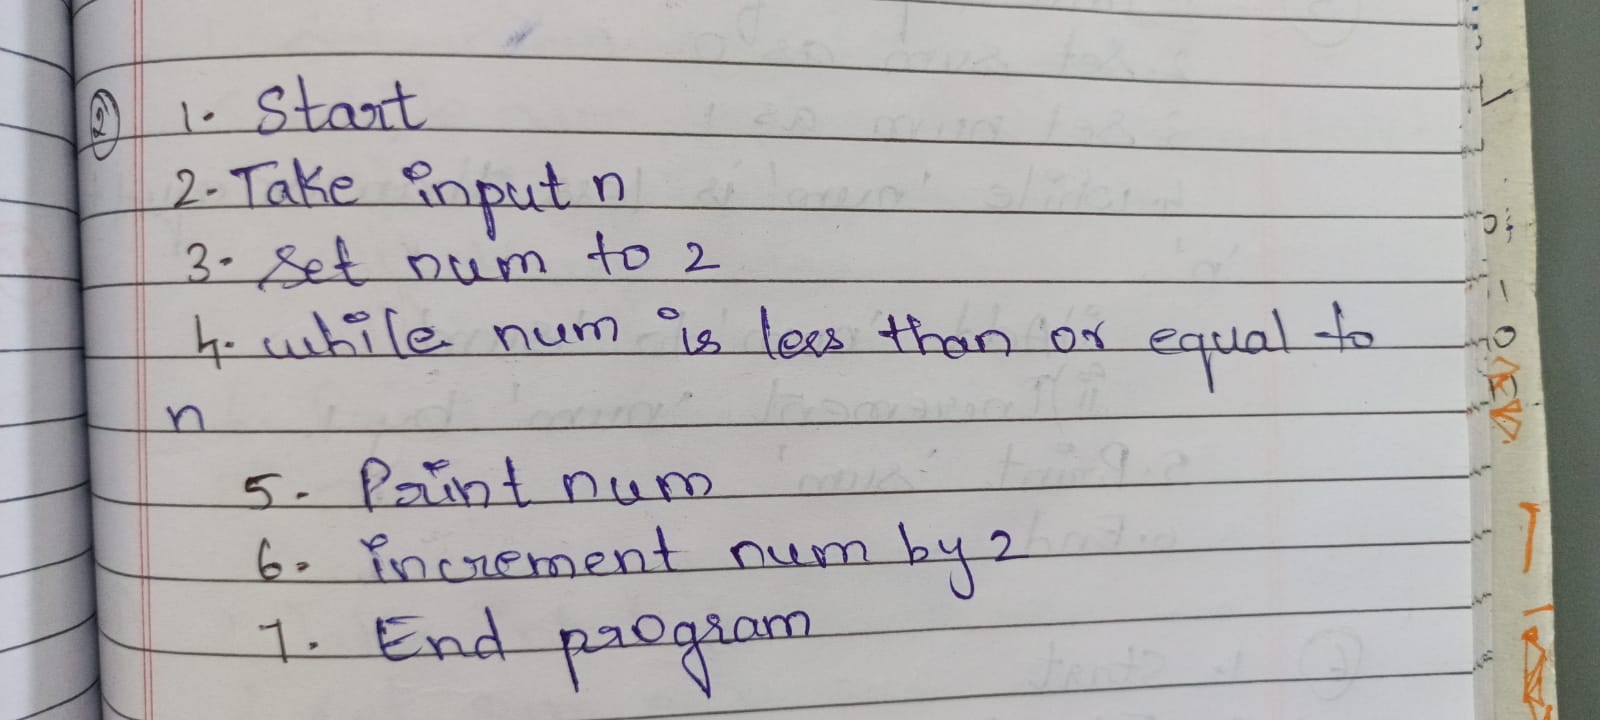 ② 1. Start
2. Take input n
3. Set num to 2
4. while num is less than or equal to
n
5. Print num
6. increment num by 2
7. End program